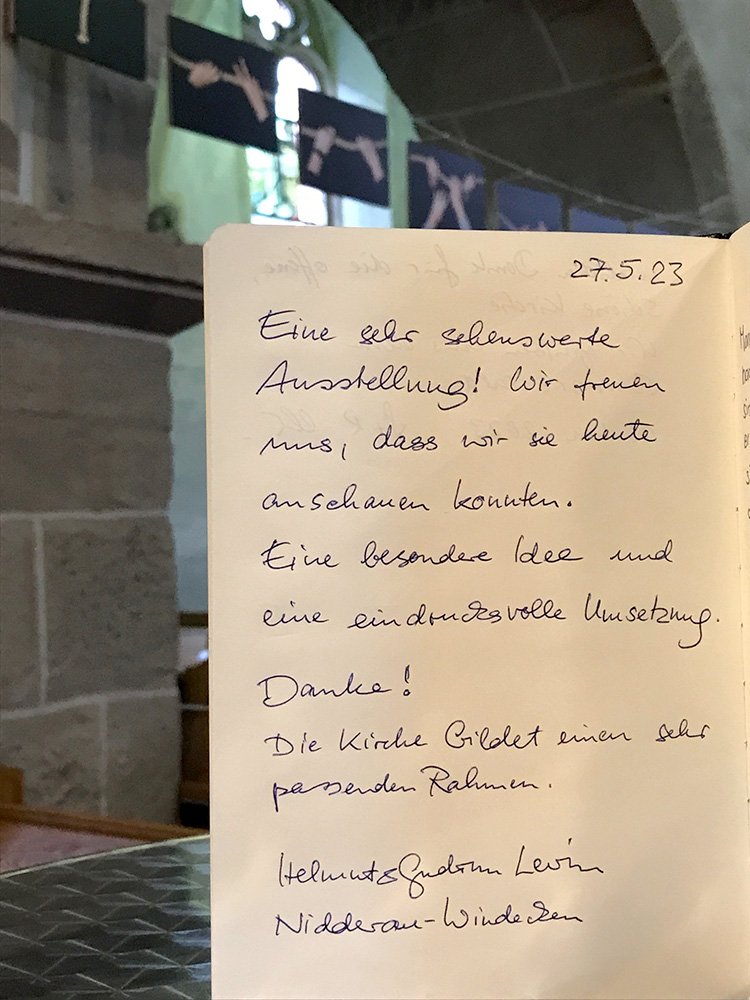 27.5.23
Eine sehr sehenswerte
Ausstellung! Wir freuen
uns, dass wir sie heute
anschauen konnten.
Eine besondere Idee und
eine eindrucksvolle Umsetzung.
Danke!
Die Kirche bildet einen sehr
passenden Rahmen.
Helmut & Gudrun Levin
Nidderau-Windecken